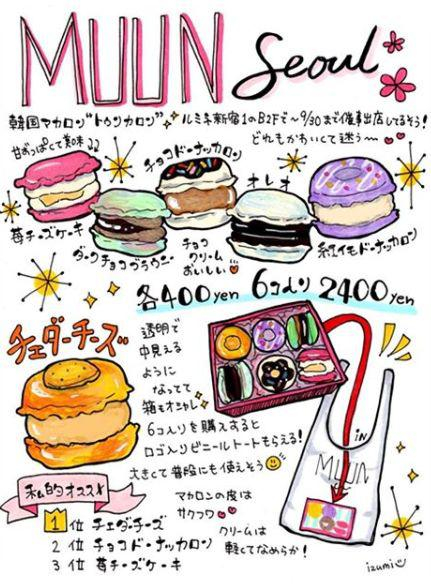 MUUN Seoul
韓国マカロン"トゥンカロン"ルミネ新宿1のB2Fで〜9/30まで催事出店してるそう!
どれもかわいくて迷う〜
甘ずっぱくて美味♪♪
チョコドーナッカロン
オレオ
苺チーズケーキ
ダークチョコブラウニー
チョコ
クリーム
おいしい
紅イモドーナッカロン
各400yen 6コ入り 2400yen
チェダーチーズ
透明で
中見える
ように
なってて
箱もオシャレ
6コ入りを購入すると
ロゴ入りビニールトートもらえる!
大きくて普段にも使えそう
IN
MUUN
私的オススメ
1位 チェダーチーズ
2位 チョコドーナッカロン
3位 苺チーズケーキ
マカロンの皮は
サクフワ
クリームは
軽くてなめらか!
izumi